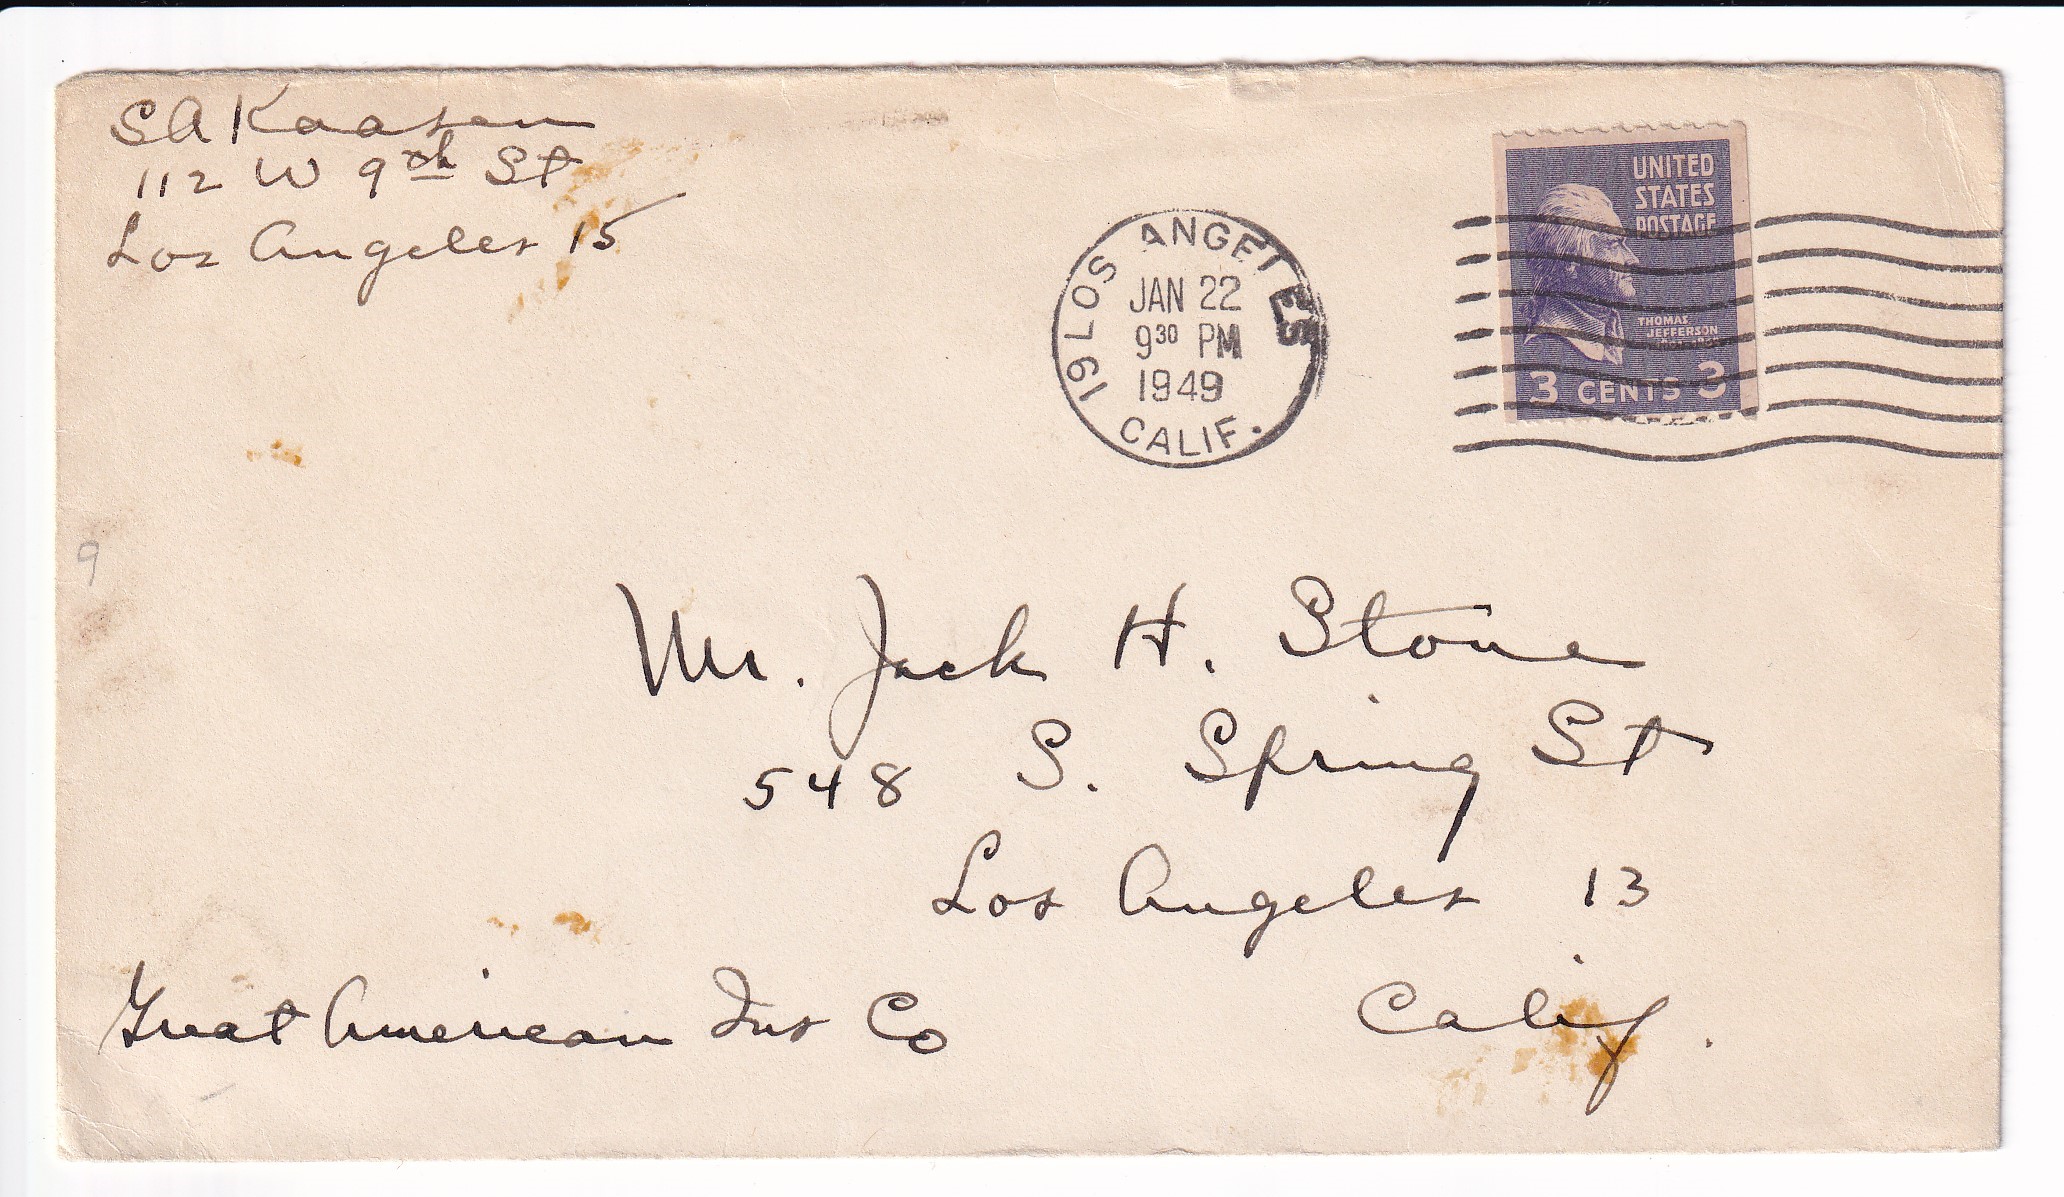 S A Kaasen
112 W 9th St
Los Angeles 15
LOS ANGELES 19
JAN 22
9 30 PM
1949
CALIF.
UNITED
STATES
POSTAGE
THOMAS
JEFFERSON
3 CENTS 3
9
Mr. Jack H. Stone
548 S. Spring St
Los Angeles 13
Calif.
Great American Ins Co